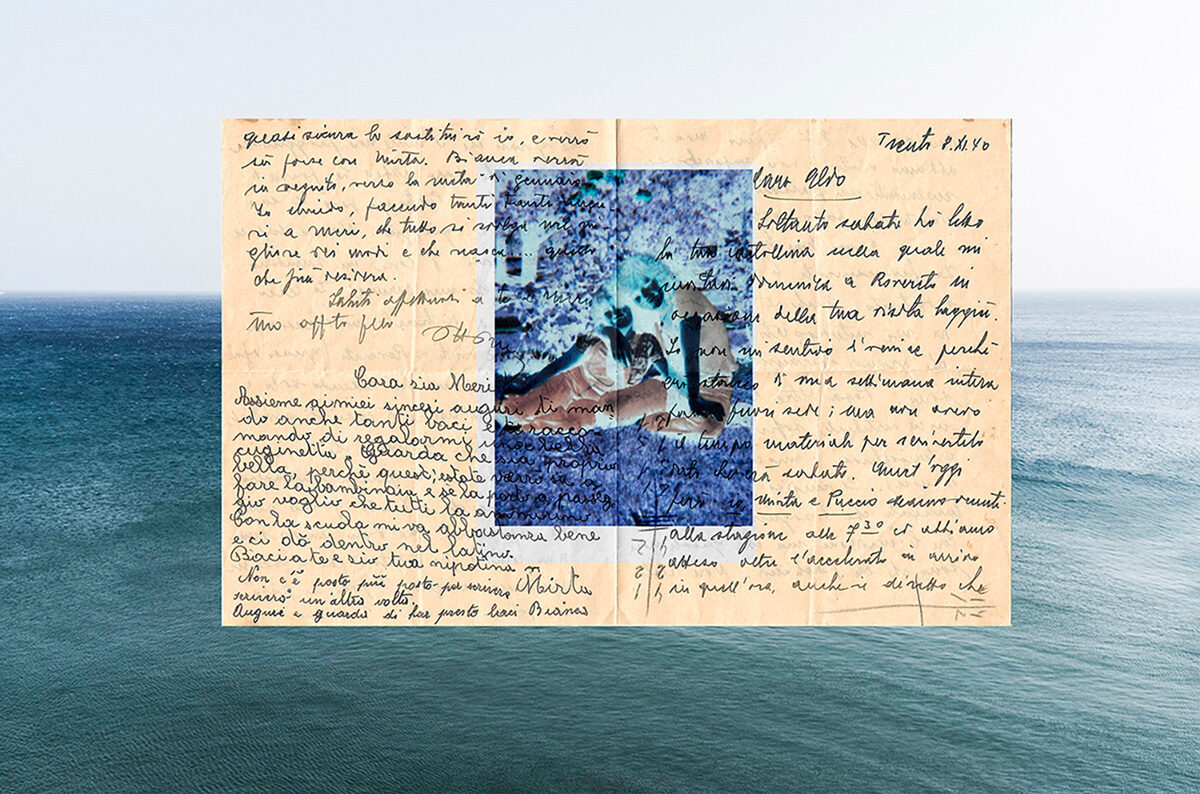 quasi sicura lo sostituirò io, e verrò
sù forse con Mirta. Bianca verrà
in seguito, verso la metà di gennaio
Io chiudo, facendo tanti tanti augu-
ri a Meri, che tutto si svolga nel mi-
gliore dei modi e che nasca... quello
che più desidera.
Saluti affettuosi a te e Meri
tuo aff.to
Cara zia Meri
Assieme ai miei sinceri auguri ti man
do anche tanti baci e ti racco-
mando di regalarmi una bella
cuginetta. Guarda che sia proprio
bella, perchè quest'estate verrò su a
fare la bambinaia e se la porto a passeg
gio voglio che tutti la ammirino.
Con la scuola mi va abbastanza bene
e ci dò dentro nel latino.
Bacia te e zio tua nipotina
Mirta
Non c'è posto più posto per scrivere
scriverò un'altra volta
Auguri e guarda di far presto baci Bianca
Trento 8.XI.40
Caro Aldo
Soltanto sabato ho letto
la tua cartollina nella quale mi
domenica a Rovereto in
occasione della tua risalita laggiù.
Io non mi sentivo di venire perchè
di una settimana intera
fuori sede; ma non avevo
il tempo materiale per scrivertelo
sabato. Quest'oggi
però io Mirta e Puccio siamo venuti
alla stazione alle 7 30 ed abbiamo
atteso oltre l'accelerato in arrivo
in quell'ora, anche il diretto che